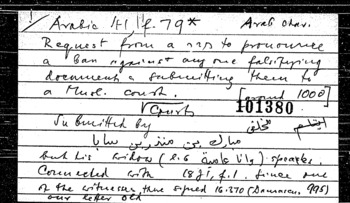 Arabic 41, f. 79* Arab. char.
Request from a to pronounce
a ban against any one falsifying
documents & submitting them to
a Musl. court. [around 1000]
√ Courts 101380
Submitted by
مبارك بن منذر بن سابا
but his widow (e.g. وانا) speaks.
Connected with 18 J 1, f. 1. Since one
of the witnesses there signed 16.370 (Damascus, 995)
our letter old